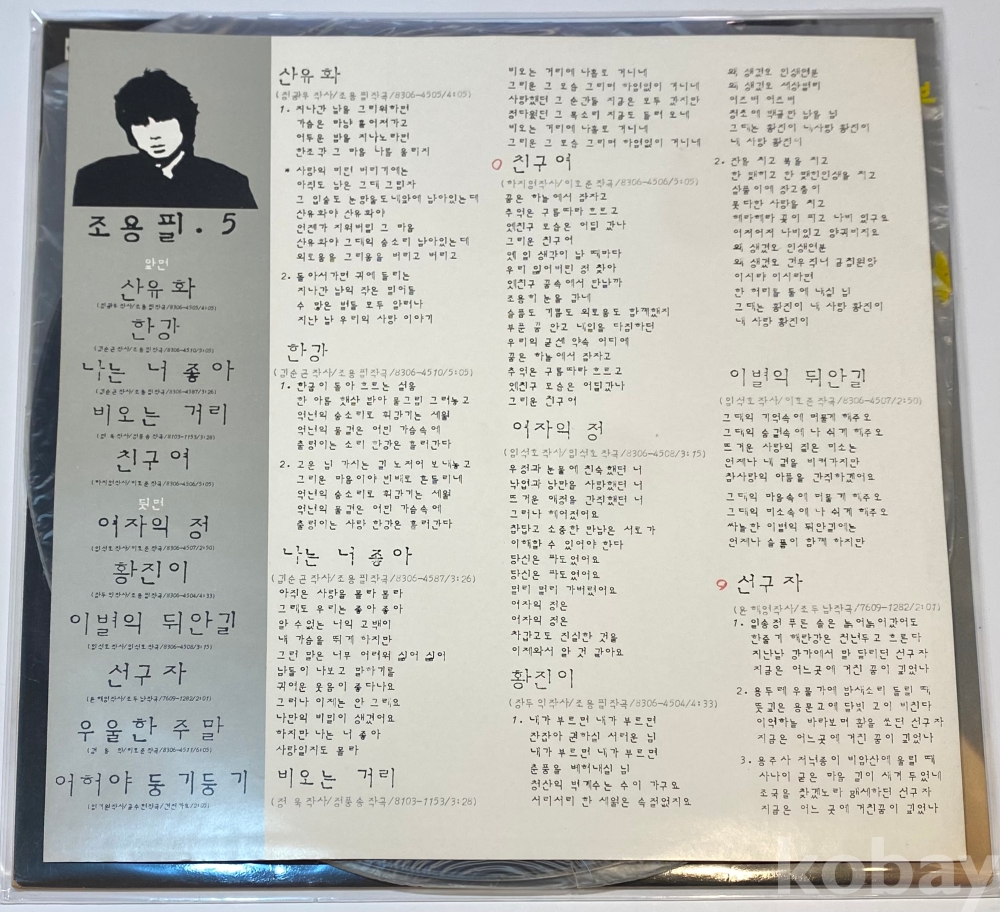 조용필. 5
앞면
산유화
한강
나는 너 좋아
비오는 거리
친구여
뒷면
여자의 정
황진이
이별의 뒤안길
선구자
우울한 주말
어허야 둥기둥기
산유화
조용필작곡/8306-4505/4:05)
1. 지나간 날을 그리워하면
가슴은 마냥 흩어져가고
어두운 밤을 지나노라면
한조각 그 마음 나를 울리지
* 사랑의 미련 버리기에는
아직도 남은 그대 그림자
그 입술도 눈망울도 내앞에 남아있는데
산유화야 산유화야
언젠가 지워버릴 그 마음
산유화야 그대의 숨소리 남아있는데
외로움을 그리움을 버리고 버리고
2. 돌아서가면 귀에 들리는
지나간 날의 작은 밀어들
수 많은 별들 모두 알려나
지난 날 우리의 사랑 이야기
한강
(김순곤작사/조용필작곡/8306-4510/5:05)
1. 한굽이 돌아 흐르는 설움
한 아름 햇살 받아 물그림 그려놓고
억년의 숨소리로 휘감기는 세월
억년의 물결은 여민 가슴속에
출렁이는 소리 한강은 흘러간다
2. 고운 님 가시는 길 노저어 보내놓고
그리운 마음이야 빈배로 흔들리네
억년의 숨소리로 휘감기는 세월
억년의 물결은 여민 가슴속에
출렁이는 사랑 한강은 흘러간다
나는 너 좋아
(김순곤작사/조용필작곡/8306-4587/3:26)
아직은 사랑을 몰라 몰라
그래도 우리는 좋아 좋아
알 수없는 너의 고백이
내 가슴을 뛰게 하지만
그런 말은 너무 어려워 싫어 싫어
남들이 나보고 말하기를
귀여운 웃음이 좋다나요
그러나 이제는 안 그래요
나만의 비밀이 생겼어요
하지만 나는 너 좋아
사랑일지도 몰라
비오는 거리
(전 욱작사/전풍송작곡/8103-1153/3:28)
비오는 거리에 나홀로 거니네
그리운 그 모습 그리며 하염없이 거니네
사랑했던 그 순간들 지금은 모두 갔지만
정다웠던 그 목소리 지금도 들려 오네
비오는 거리에 나홀로 거니네
그리운 그 모습 그리며 하염없이 거니네
친구여
(하지영작사/이호준작곡/8306-4506/5:05)
꿈은 하늘에서 잠자고
추억은 구름따라 흐르고
옛친구 모습은 어딜 갔나
그리운 친구여
옛 일 생각이 날 때마다
우리 잃어버린 정 찾아
옛친구 꿈속에서 만날까
조용히 눈을 감네
슬픔도 기쁨도 외로움도 함께했지
부푼 꿈 안고 내일을 다짐하던
우리의 굳센 약속 어디에
꿈은 하늘에서 잠자고
추억은 구름따라 흐르고
옛친구 모습은 어딜갔나
그리운 친구여
여자의 정
(임석호작사/임석호 작곡/8306-4508/3:15)
우정과 눈물에 친숙했던 너
낙엽과 낭만을 사랑했던 너
뜨거운 애정을 간직했던 너
그러나 헤어졌어요
참답고 소중한 만남은 서로가
이해할 수 있어야 한다
당신은 파도였어요
당신은 파도였어요
멀리 멀리 가버렸어요
여자의 정은
여자의 정은
차갑고도 진실한 것을
이제와서 알 것 같아요
황진이
(장두익작사/조용필작곡/8306-4504/4:33)
1. 내가 부르면 내가 부르면
잔잡아 권하실 서러운 님
내가 부르면 내가 부르면
춘풍을 베어내실 님
청산의 벽계수는 수이 가구요
서리서리 한 세월은 속절없지요
왜 생겼오 인생연분
왜 생겼오 세상멀리
어즈버 어즈버
청초에 백골만 남을 님
그대는 황진이 내사랑 황진이
내 사랑 황진이
2. 잔을 치고 북을 치고
한 맺히고 한 맺힌인생을 치고
살풀이에 장고춤이
못다한 사랑을 치고
헤라헤라 꽃이 피고 나비 있구요
어저어저 나비있고 양귀비지요
왜 생겼오 인생연분
왜 생겼오 견우직녀 금침원앙
이시라 이시라면
한 허리를 둘에 내실 님
그대는 황진이 내 사랑 황진이
내 사랑 황진이
이별의 뒤안길
(임석호작사/이호준작곡/8306-4507/2:50)
그대의 기억속에 머물게 해주오
그대의 숨결속에 나 쉬게 해주오
뜨거운 사랑의 짙은 미소는
언제나 내 곁을 비켜가지만
참사랑의 아픔을 간직하겠어요
그대의 마음속에 머물게 해주오
그대의 미소속에 나 쉬게 해주오
싸늘한 이별의 뒤안길에는
언제나 슬픔이 함께 하지만
선구자
(윤해영작사/조두남작곡/7609-1282/2:01)
1. 일송정 푸른 솔은 늙어늙어갔어도
한줄기 해란강은 천년두고 흐른다
지난날 강가에서 말 달리던 선구자
지금은 어느곳에 거친 꿈이 깊었나
2. 용두레 우물가에 밤새소리 들릴 때
뜻깊은 용문교에 달빛 고이 비친다
이역하늘 바라보며 활을 쏘던 선구자
지금은 어느곳에 거친 꿈이 깊었나
3. 용주사 저녁종이 비암산에 울릴 때
사나이 굳은 마음 깊이 새겨 두었네
조국을 찾겠노라 맹세하던 선구자
지금은 어느 곳에 거친꿈이 깊었나
kobay